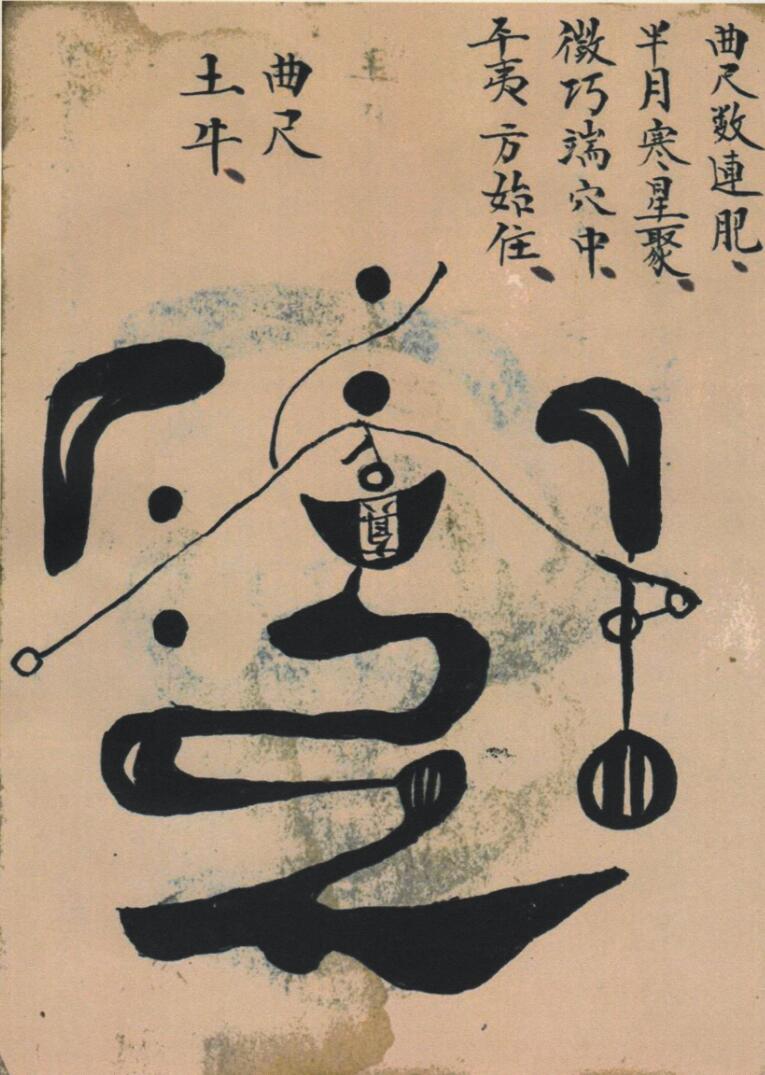 曲尺数連肥、
半月寒星聚、
微巧端穴中、
平夷方始住、
曲尺
土牛、
真